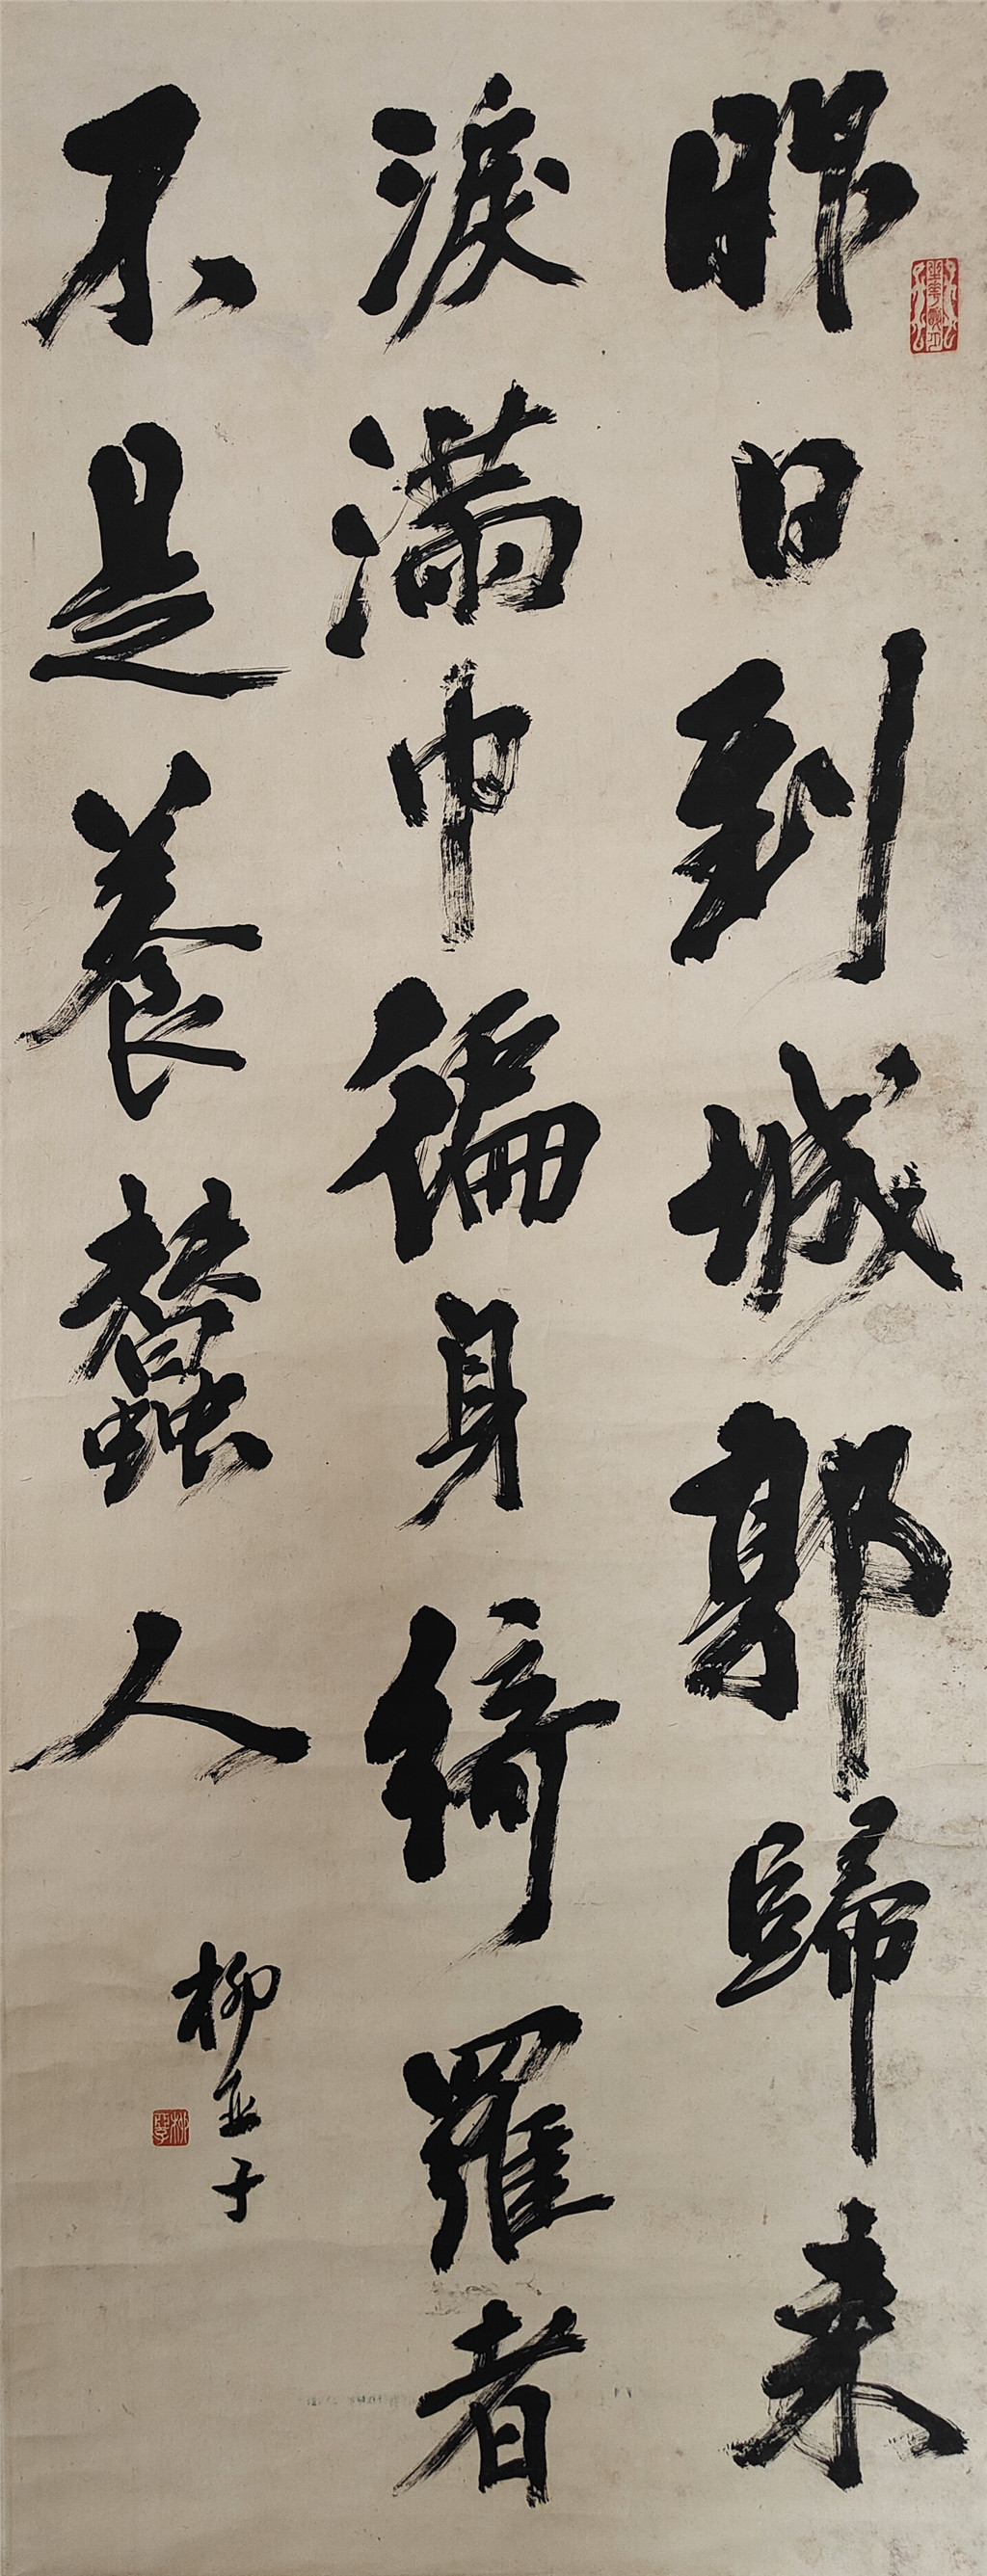 昨日到城郭歸来
淚滿巾徧身綺羅者
不是養蠶人
柳亚子